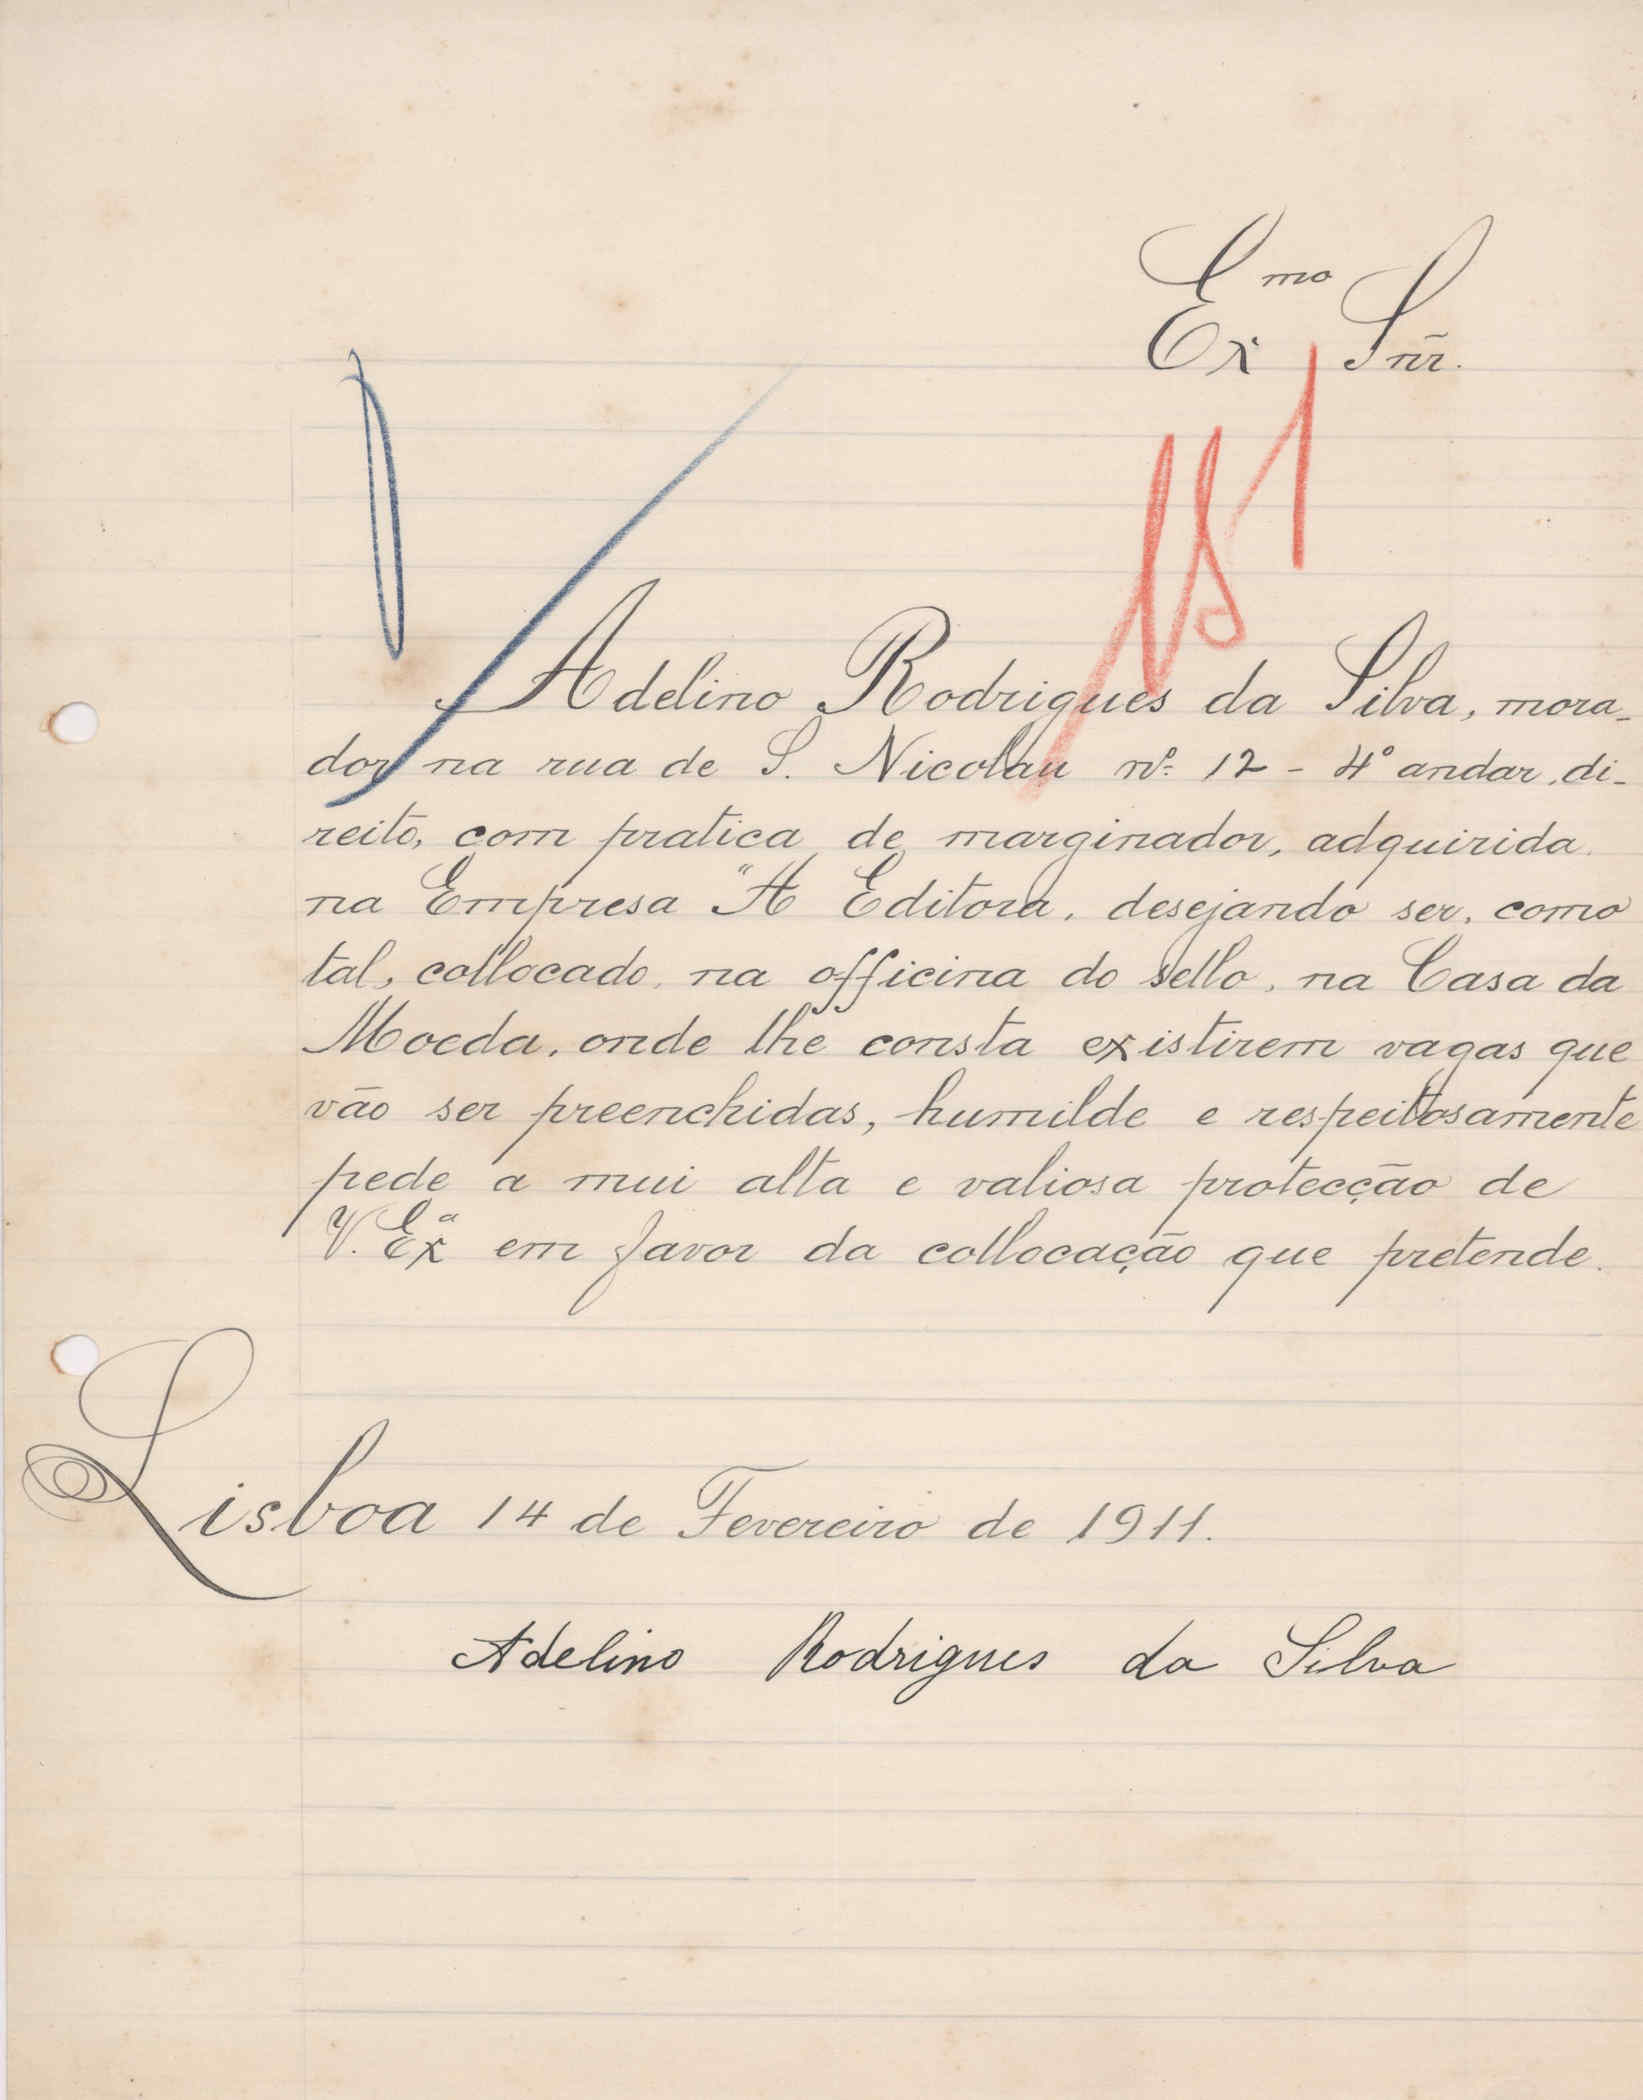 Ex.mo Snr.
Adelino Rodrigues da Silva, mora-
dor na rua de S. Nicolau nº 12 - 4º andar, di-
reito, com pratica de marginador, adquirida
na Empresa "A Editora, desejando ser, como
tal, collocado, na officina do sello, na Casa da
Moeda, onde lhe consta existirem vagas que
vão ser preenchidas, humilde e respeitosamente
pede a mui alta e valiosa protecção de
V. Exª em favor da collocação que pretende.
Lisboa 14 de Fevereiro de 1911.
Adelino Rodrigues da Silva